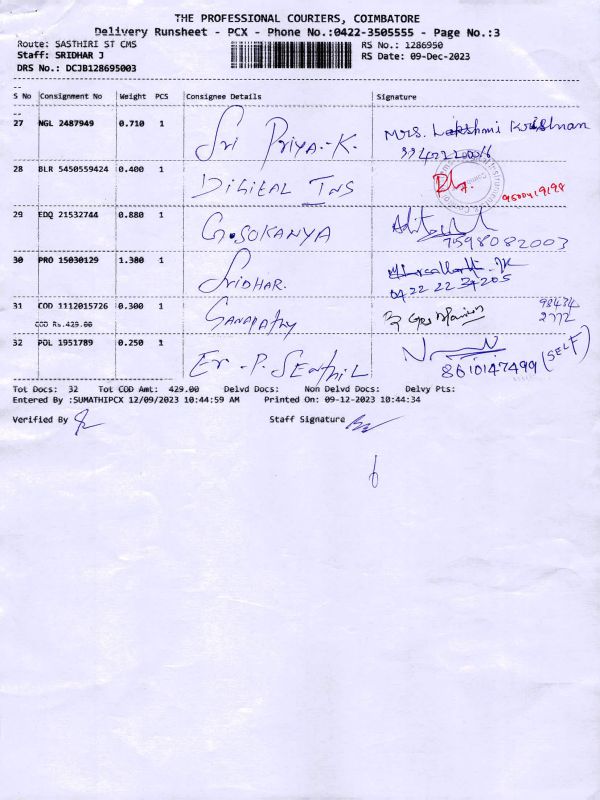 THE PROFESSIONAL COURIERS, COIMBATORE
Delivery Runsheet - PCX - Phone No.:0422-3505555 - Page No.:3
Route: SASTHIRI ST CMS RS No.: 1286950
Staff: SRIDHAR J RS Date: 09-Dec-2023
DRS No.: DCJB128695003
S No Consignment No Weight PCS Consignee Details Signature
27 NGL 2487949 0.710 1 Sri Priya.-K. Mrs. Lakshmi Krishnan
28 BLR 5450559424 0.400 1 DIGITAL INS
29 EDQ 21532744 0.880 1 G.SUKANYA
7598082003
30 PRO 15030129 1.380 1 SRIDHAR.
0422 2234205
31 COD 1112015726 0.300 1 GANAPATHY 98434
COD Rs.429.00 2772
32 POL 1951789 0.250 1 Er.P.SEnthiL
8610147499 (SELF)
Tot Docs: 32 Tot COD Amt: 429.00 Delvd Docs: Non Delvd Docs: Delvy Pts:
Entered By :SUMATHIPCX 12/09/2023 10:44:59 AM Printed On: 09-12-2023 10:44:34
Verified By Staff Signature